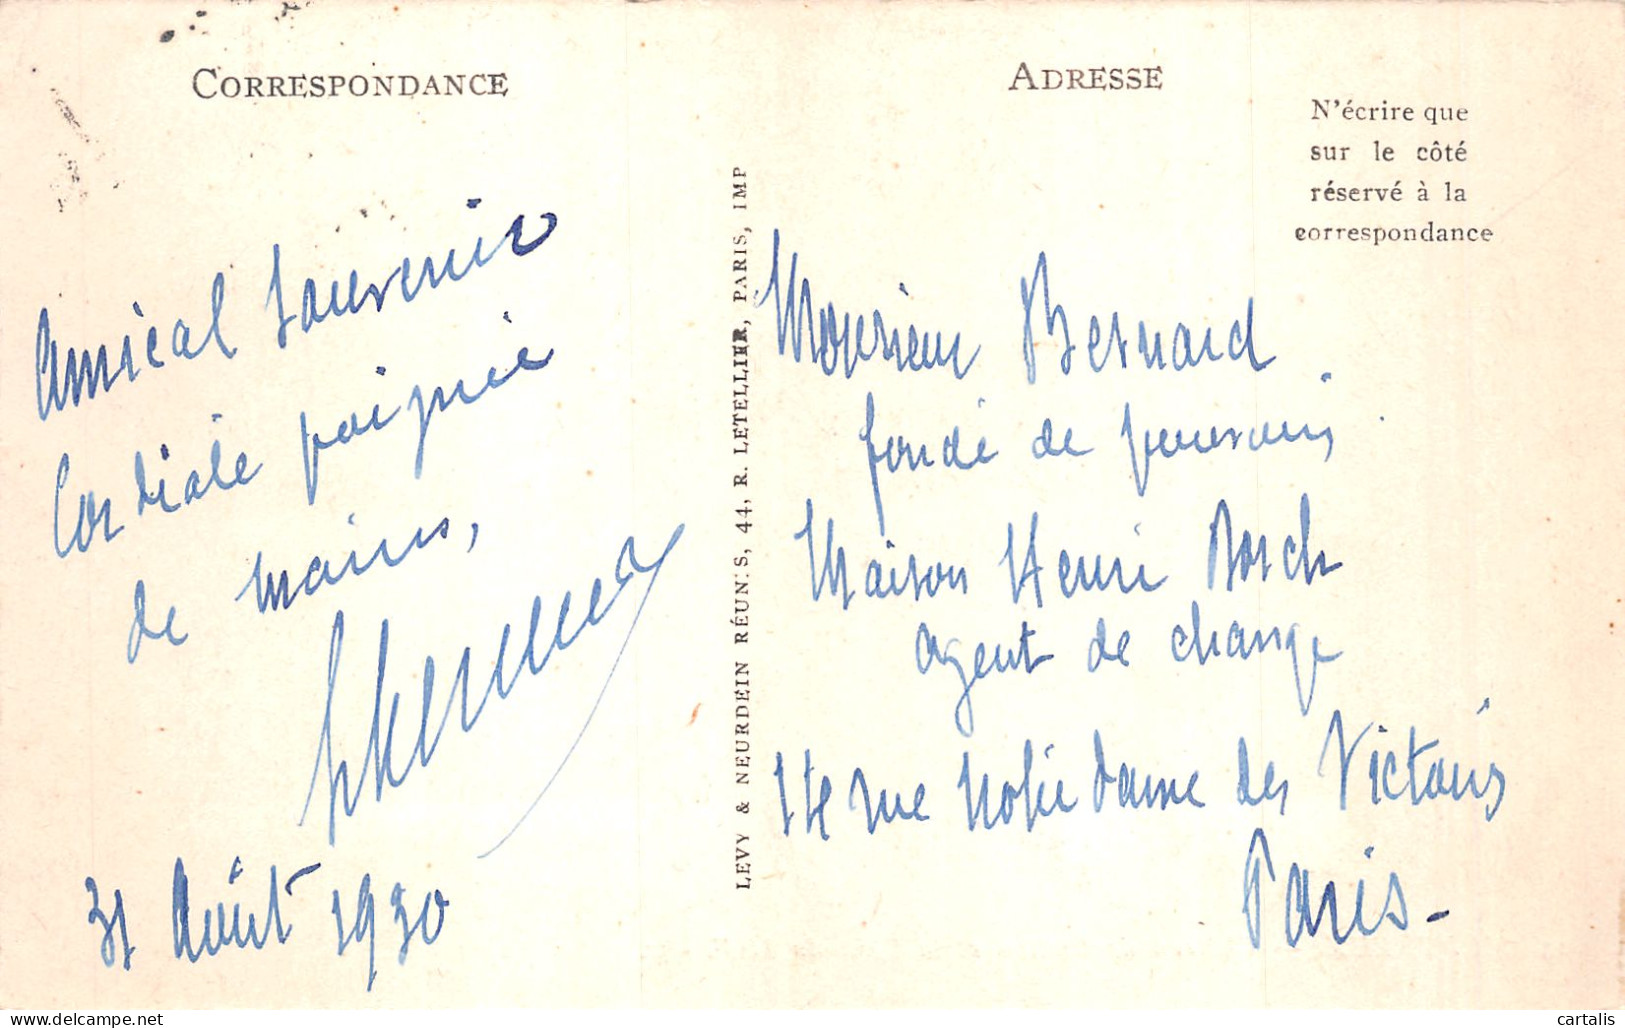 CORRESPONDANCE
Amical souvenir
Cordiale poignée
de mains,
31 Août 1930
LEVY & NEURDEIN RÉUNIS, 44, R. LETELLIER, PARIS, IMP
ADRESSE
N'écrire que
sur le côté
réservé à la
correspondance
Monsieur Bernard
fondé de pouvoirs
Maison Henri
agent de change
14 rue Notre dame des Victoires
Paris -
www.delcampe.net
cartalis